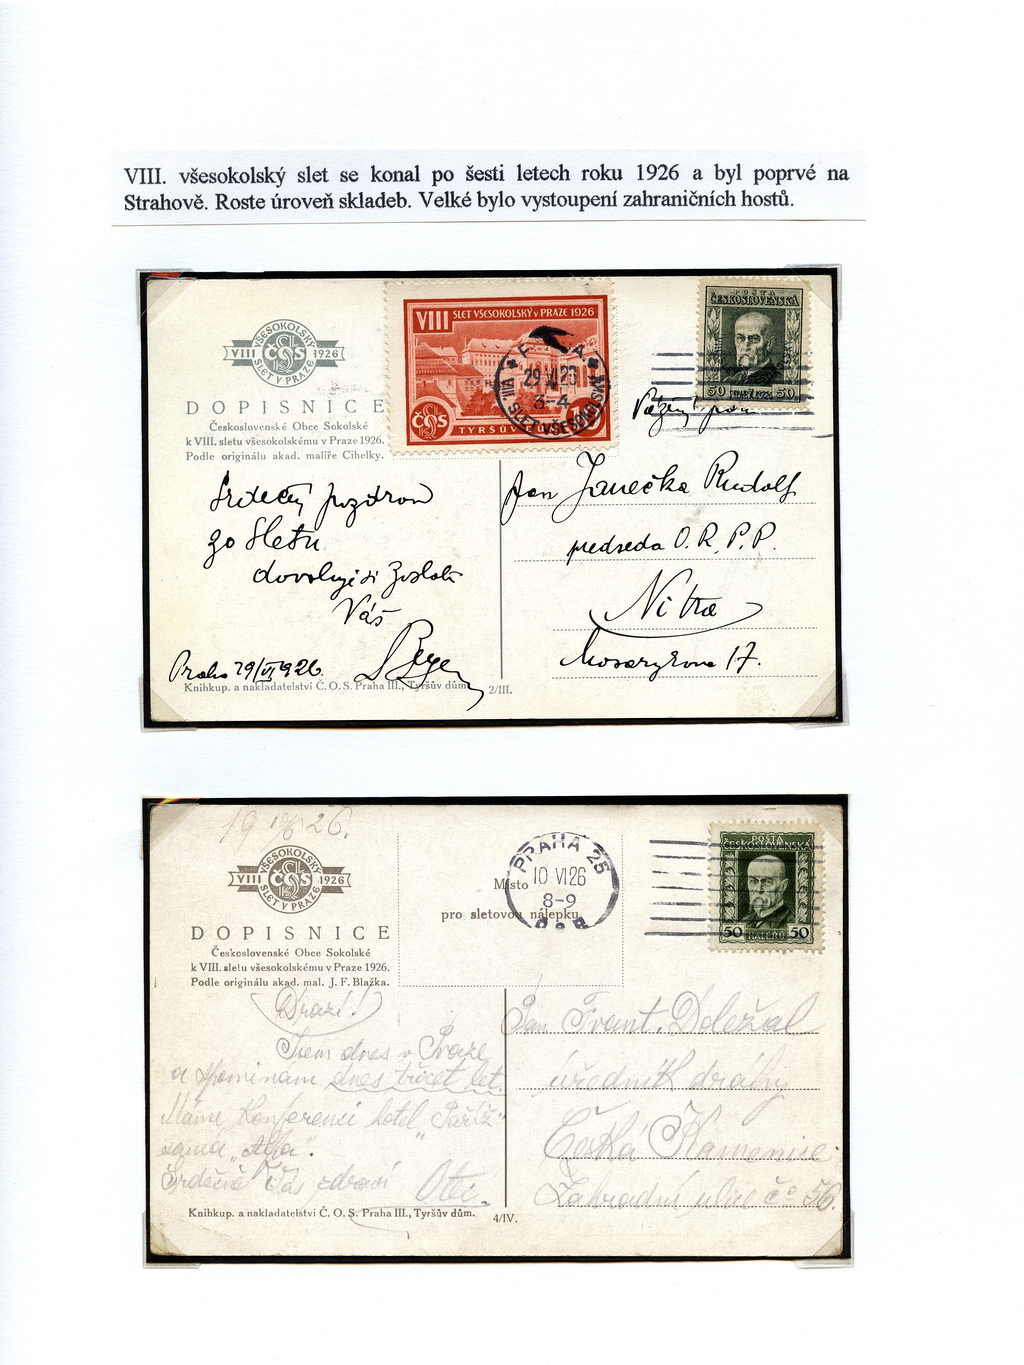 VIII. všesokolský slet se konal po šesti letech roku 1926 a byl poprvé na
Strahově. Roste úroveň skladeb. Velké bylo vystoupení zahraničních hostů.
VŠESOKOLSKÝ
VIII ČOS 1926
SLET V PRAZE
DOPISNICE
Československé Obce Sokolské
k VIII. sletu všesokolskému v Praze 1926.
Podle originálu akad. malíře Cihelky.
VIII SLET VŠESOKOLSKÝ V PRAZE 1926
ČOS TYRŠŮV DŮM
29 VI 26
3-4
VIII. SLET VŠESOKOLSKÝ
POŠTA
ČESKOSLOVENSKÁ
50 50
Srdečný pozdrav
ze sletu
dovoluje si zaslati
Váš
Praha 29/VI 1926.
Vážený pan
Pan Janečka Rudolf
předseda O. R. P. P.
Nitra
Masarykova 17.
Knihkup. a nakladatelství Č. O. S. Praha III., Tyršův dům. 2/III.
19 10/6 26.
VŠESOKOLSKÝ
VIII ČOS 1926
SLET V PRAZE
DOPISNICE
Československé Obce Sokolské
k VIII. sletu všesokolskému v Praze 1926.
Podle originálu akad. mal. J. F. Blažka.
Místo
pro sletovou nálepku.
PRAHA 25
10 VI 26
8-9
POŠTA
ČESKOSLOVENSKÁ
50 HALÉŘŮ 50
Drazí!
Jsem dnes v Praze
a vzpomínám dnes třicet let.
Máme konferenci hotel „Paříž"
Srdečně Vás zdraví Otec.
Pan Frant. Doležal
úředník dráhy
Česká Kamenice
Zahradní ulice č. 56.
Knihkup. a nakladatelství Č. O. S. Praha III., Tyršův dům. 4/IV.